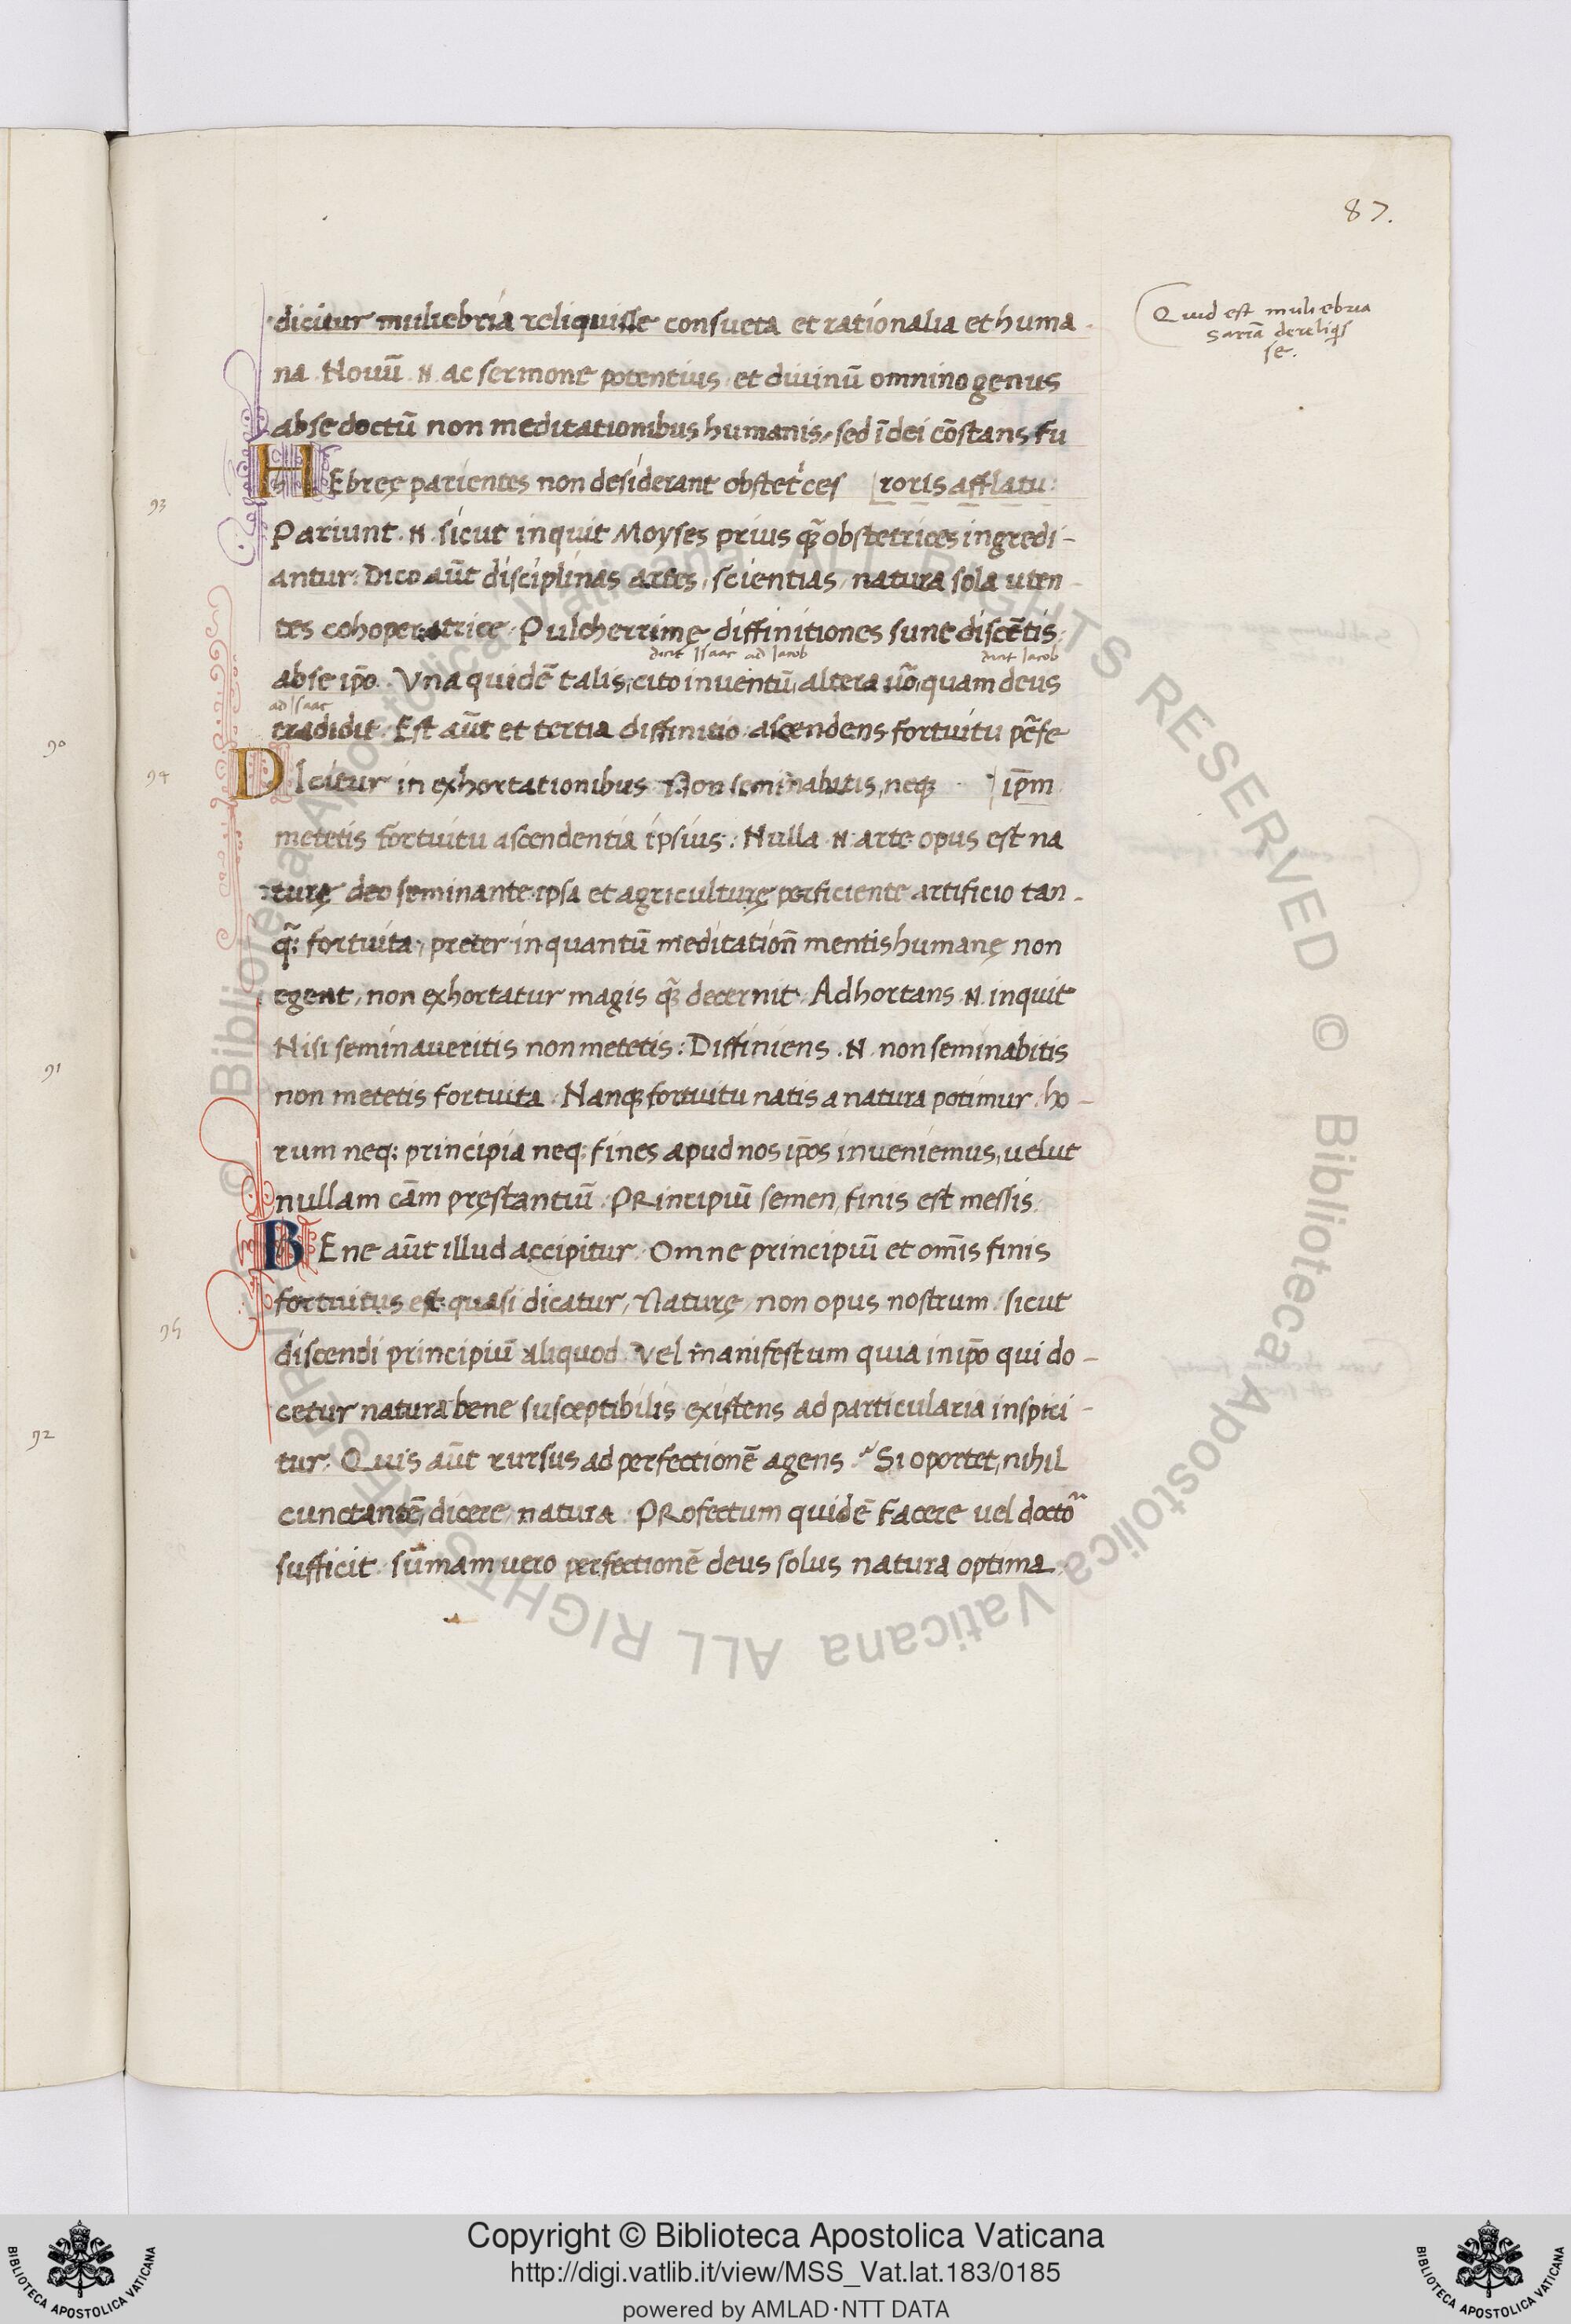 87.
dicitur muliebria reliquisse consueta et rationalia et huma-
na. Nouū .N. ac sermone potentius, et diuinū omnino genus
ab se doctū non meditationibus humanis, sed ī dei cōstans fu
HEbreę parientes non desiderant obstetrices [roris afflatu:
Pariunt .N. sicut inquit Moyses prius q̄ obstetrices ingredi-
antur: Dico aūt disciplinas artes, scientias, natura sola uten-
tes cohoperatrice. Pulcherrimę diffinitiones sunt discētis:
dixit Isaac ad Jacob dixit Jacob
ab se ip̄o. Vna quidē talis, cito inuentū, altera uō, quam deus
ad Isaac
tradidit. Est aūt et tertia diffinitio. ascendens fortuitu pēfe
DIcitur in exhortationibus. Non seminabitis, neq; | ip̄m
metetis fortuitu ascendentia ipsius: Nulla .N. arte opus est na
turę deo seminante ipsa et agriculturę perficiente artificio tan-
q̄; fortuita, preter inquantū meditation̄ mentis humanę non
egent, non exhortatur magis q̄ decernit. Adhortans .N. inquit
Nisi seminaueritis non metetis: Diffiniens .N. non seminabitis
non metetis fortuita. Nanq; fortuitu natis a natura potimur. ho-
rum neq; principia neq; fines apud nos ip̄os inueniemus, uelut
nullam cām pręstantiū. PRincipiū semen, finis est messis.
BEne aūt illud accipitur. Omne principiū et om̄is finis
fortuitus est quasi dicatur, Naturę, non opus nostrum. sicut
discendi principiū aliquod. Vel manifestum quia in ip̄o qui do-
cetur natura bene susceptibilis existens ad particularia inspici-
tur. Quis aūt rursus ad perfectionē agens? Si oportet, nihil
cunctantē, dicere, natura. PRofectum quidē facere uel doctō
sufficit. sūmam uero perfectionē deus solus natura optima.
Quid est muliebria
Sarrā dereliq̄s
se.
93
90
94
91
95
92
© Biblioteca Apostolica Vaticana ALL RIGHTS RESERVED © Biblioteca Apostolica Vaticana ALL RIGHTS RESERVED
Copyright © Biblioteca Apostolica Vaticana
http://digi.vatlib.it/view/MSS_Vat.lat.183/0185
powered by AMLAD·NTT DATA
BIBLIOTECA APOSTOLICA VATICANA
BIBLIOTECA APOSTOLICA VATICANA